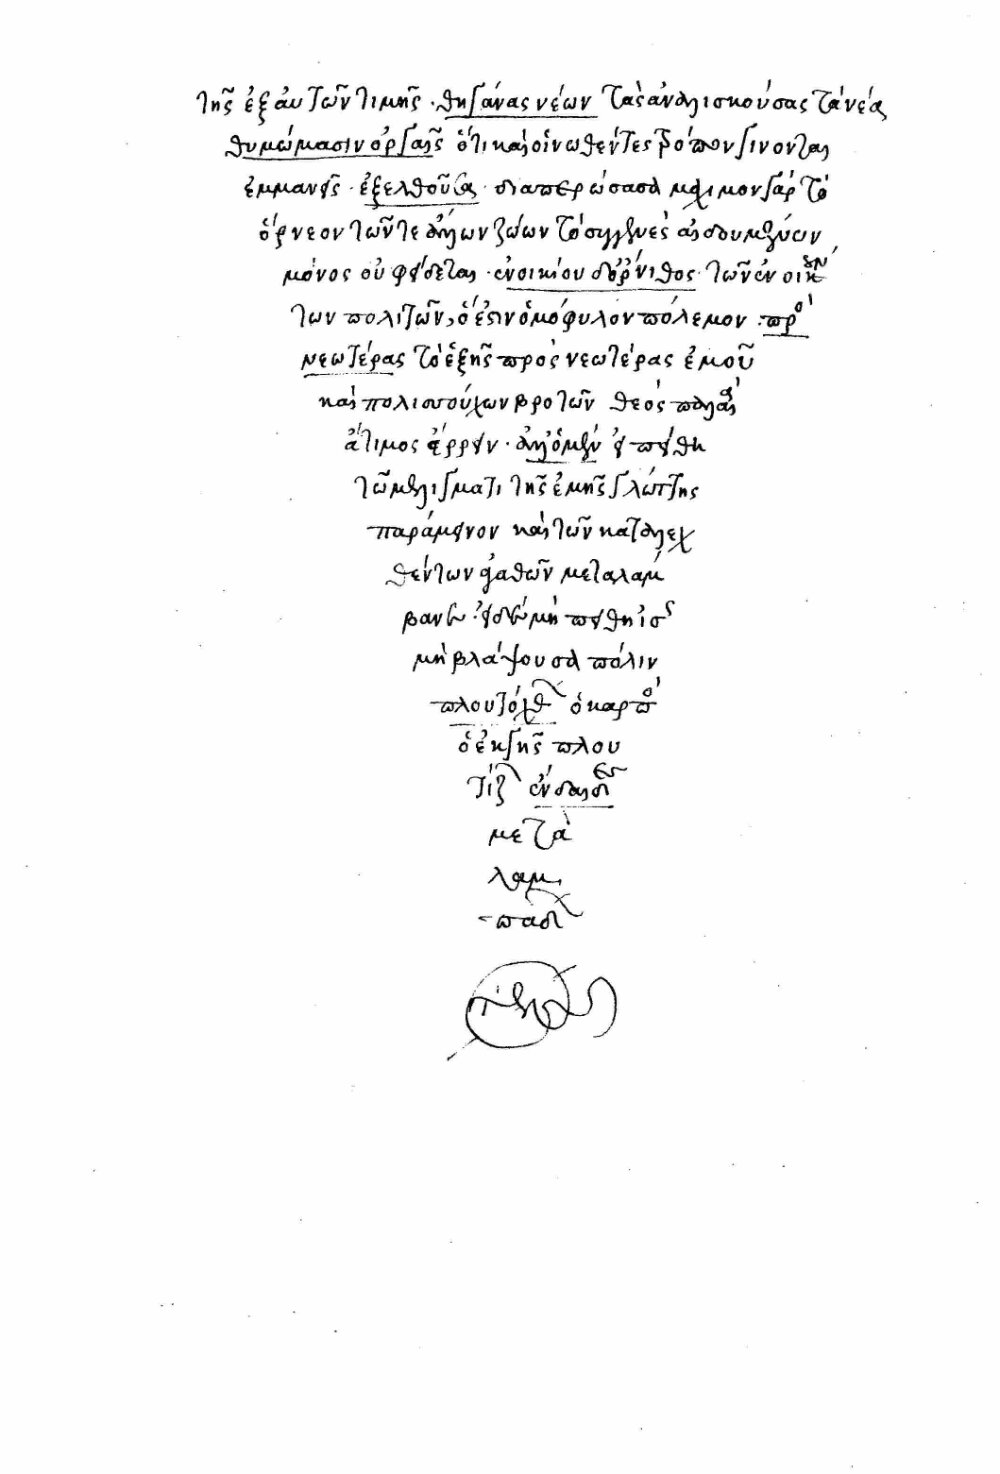 τῆς ἐξ αὐτῶν τιμῆς · θηγάνας νέων τὰς ἀναλισκούσας τὰ νέα
θυμώμασιν ὀργαῖς ὅτι καὶ οἰνωθέντες τρόπον γίνονται
ἐμμανεῖς · ἐξελθοῦσα · διαπερώσασα μάχιμον γὰρ τὸ
ὄρνεον τῶν τε ἄλλων ζώων τὸ συγγενὲς αἰδουμένων
μόνος οὐ φείδεται · ἐνοικίου δ' ὄρνιθος · τῶν ἐνοικούν
των πολιτῶν, ὅ ἐστιν ὁμόφυλον πόλεμον : πρὸ
νεωτέρας τὸ ἑξῆς πρὸς νεωτέρας ἐμοῦ
καὶ πολισσούχων βροτῶν θεὸς παλλὰς
ἄτιμος ἔρρειν · ἀλλ' ὁ μὲν εἰ πείθη
τῶ μειλίγματι τῆς ἐμῆς γλώττης
παράμεινον καὶ τῶν καταλεχ
θέντων ἀγαθῶν μεταλάμ
βανε · εἰ δὲ μὴ πείθη ἴσθ
μὴ βλάψουσα πόλιν
πλουτόχθων ὁ καρπὸς
ὁ ἐκ γῆς πλου
τίζων ἐνδαῖδες
μετὰ
λαμ
πάδων
τέλος